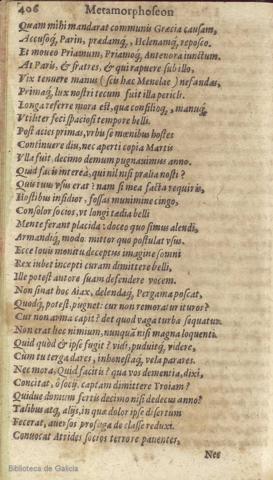 406 Metamorphoseon
Quam mihi mandarat communis Græcia causam,
Accusoq́, Parin, prædamq́, Helenamq́, reposco.
Et moveo Priamum, Priamoq́, Antenora iunctum.
At Paris, & fratres, & qui rapuere sub illo,
Vix tenuere manus (scis hac Menelae) nefandas,
Primaq́, lux nostri tecum fuit illa pericli.
Longa referre mora est, quæ consilioq́, manuq́
Vtiliter feci spaciosi tempore belli.
Post acies primas, vrbis se mœnibus hostes
Continuere diu, nec aperti copia Martis
Vlla fuit. decimo demum pugnauimus anno.
Quid facis interea, qui nil nisi prælia nosti?
Quis tuus vsus erat? nam si mea facta requiris,
Hostibus insidior, fossas munimine cingo,
Consolor socios, vt longi tædia belli
Mente ferant placida: doceo quo simus alendi,
Armandiq́, modo: mittor quo postulat vsus.
Ecce Iouis monitu deceptus imagine somni
Rex iubet incepti curam dimittere belli,
Ille potest autore suam defendere vocem.
Non sinat hoc Aiax, delendaq́, Pergama poscat,
Quodq́, potest, pugnet: cur non remoratur ituros?
Cur non arma capit? det quod vaga turba sequatur.
Non erat hoc nimium, nunquã nisi magna loquenti.
Quid quòd & ipse fugit? vidi, puduitq́, videre,
Cum tu terga dares, inhonestaq́, vela parares.
Nec mora, Quid facitis? quæ vos dementia, dixi,
Concitat, ô socij, captam dimittere Troiam?
Quidue domum fertis decimo nisi dedecus anno?
Talibus atq́, alijs, in quæ dolor ipse disertum
Fecerat, auersos profuga de classe reduxi.
Conuocat Atrides socios terrore pauentes,
Nec
Biblioteca de Galicia